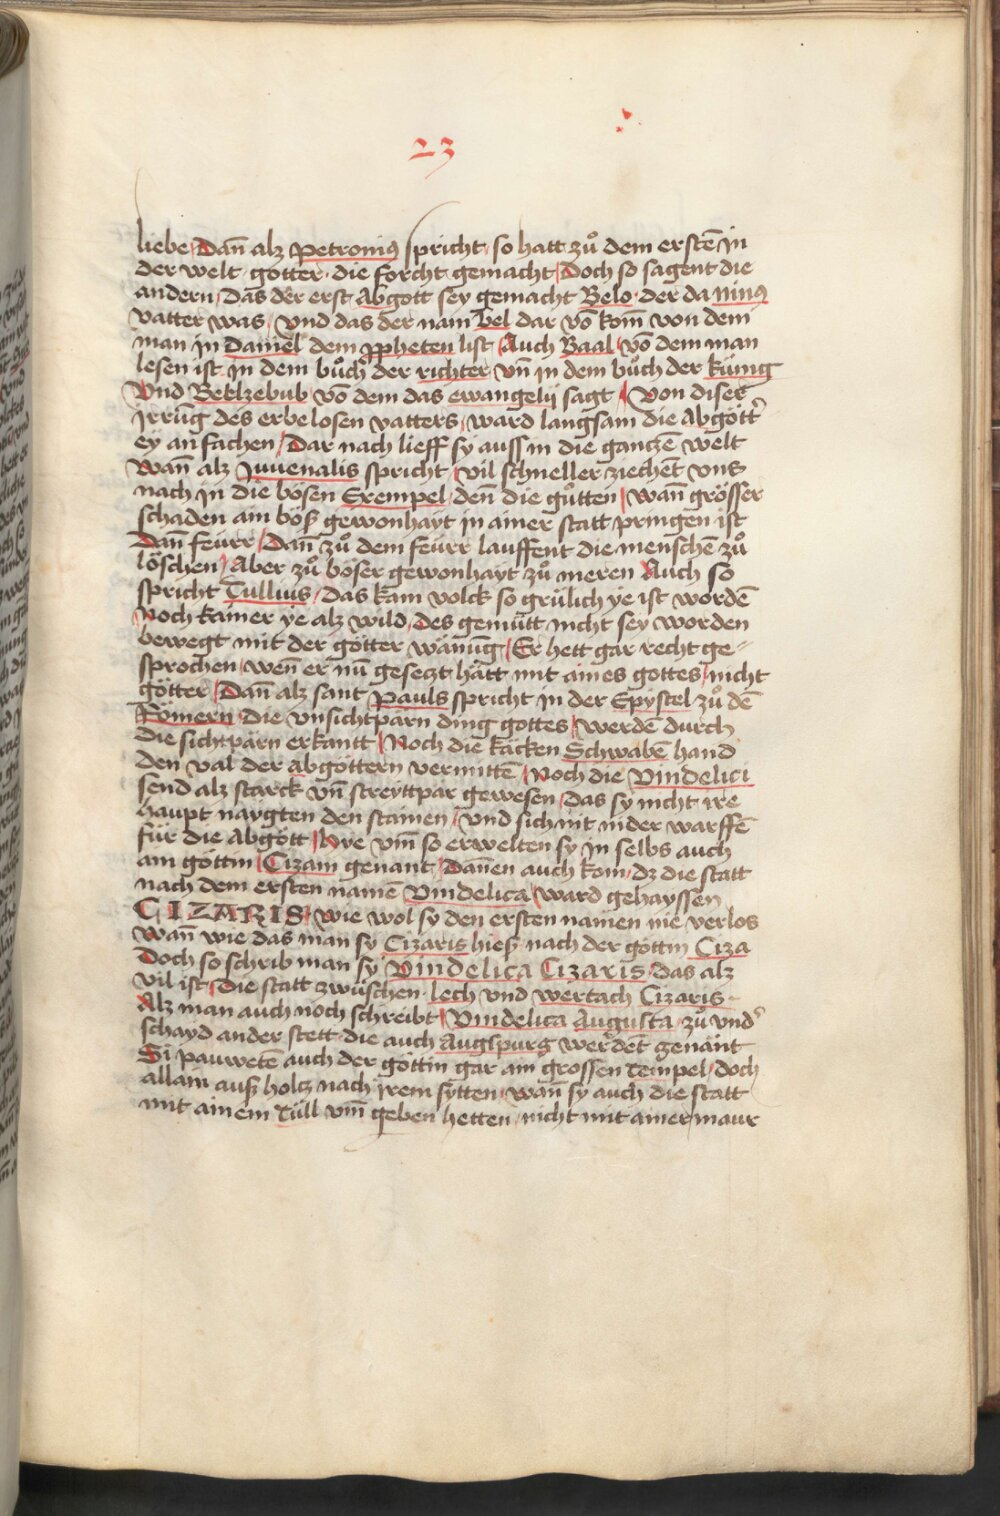 23
liebe / Dañ alz Petronius spricht / so hatt zů dem erstē in
der welt götter / die forcht gemacht / Doch so sagent die
andern / Das der erst Abgott sey gemacht Belo / der da ninus
vatter was / vnd das der nam bel dar vō kom̄ von dem
man in Daniel dem ppheten list / Auch Baal / vō dem man
lesen ist in dem bůch der richter / vn̄ in dem bůch der künig
Vnd Beklzebub / vō dem das ewangelij sagt / Von diser
irrūg des erbelosen vatters / ward langsam die Abgött
ey an fachen / Dar nach lieff sy auss in die gantzē welt
Wañ alz Juuenalis spricht / vil schneller ziechēt vns
nach in die bösen Exempel / deñ die gůtten / wañ grösser
schaden am böß gewonhayt in ainer statt pringen ist
Dañ feürr / Dañ zů dem feürr lauffent die menschē zů
löschen / Aber zů böser gewonhayt zů meren Auch so
spricht Tullius / das kain volck so grülich ye ist wordē
Noch kainer ye alz wild / des gemütt nicht sey worden
bewegt mit der götter wänūg / Er hett gar recht ge-
sprochen / weñ er nū gesetzt hätt mit aines gottes / nicht
götter / Dañ alz sant Pauls spricht in der Epystel zů dē
Römern / die vnsichtpärn ding gottes / werdē durch
die sichtpärn erkantt / Noch die käcken Schwabē hand
den val der abgöttern vermittē / Noch die Vindelici
send alz starck vn̄ streyttpar gewesen / das sy nicht ire
haupt naygten den stainen / vnd sich nit nider warffē
für die Abgött / Nye vm̄ so erwelten sy in selbs auch
ain göttin / Cizam genant / Dannen auch kom / dz die statt
nach dem ersten namē Vindelica / ward gehayssen
CIZARIS / wie wol sy den ersten namen nie verlos
wañ wie das man sy Cizaris hieß nach der göttin Ciza
Doch so schrib man sy Vindelica Cizaris / das alz
vil ist / Die statt zwüschen / lech vnd wertach Cizaris -
Alz man auch noch schreibt / Vindelica Augusta / zů vnd
schayd ander stett / die auch Auglpurg werdēt genant
Si pauwetē auch der göttin gar ain grossen tempel / doch
allain auß holtz nach irem sytten / wañ sy auch die statt
mit ainem tüll vm̄ geben hetten / nicht mit ainer maur